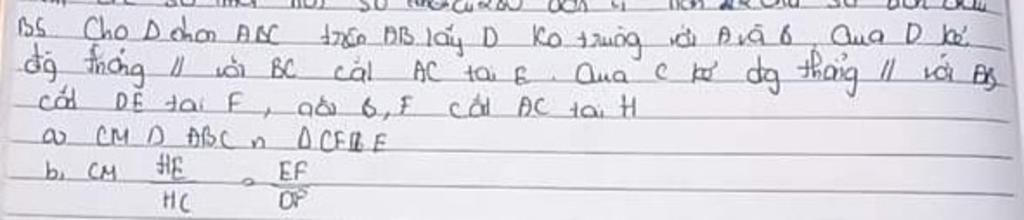 B5 Cho Δ nhọn ABC trên AB lấy D ko trùng với A và B. Qua D kẻ
đg thẳng // với BC cắt AC tại E. Qua C kẻ đg thẳng // với AB
cắt DE tại F, gọi B, F cắt AC tại H
a, CM Δ ABC ∽ Δ CF E
b, CM HE/HC = EF/DF